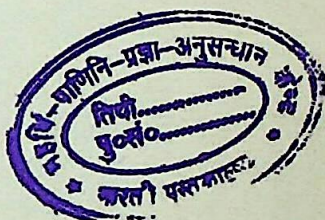 महर्षि-पाणिनि-प्रज्ञा-अनुसन्धान केन्द्र
तिथी..................
पु०सं०..................
भारती पुस्तकालय